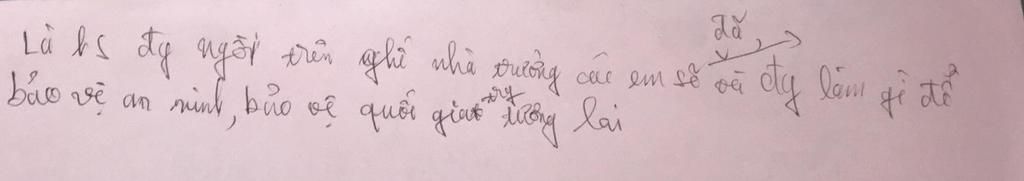 đã,
Là hs đg ngồi trên ghế nhà trường các em sẽ và đg làm gì để
bảo vệ an ninh, bảo vệ quốc gia trg tương lai